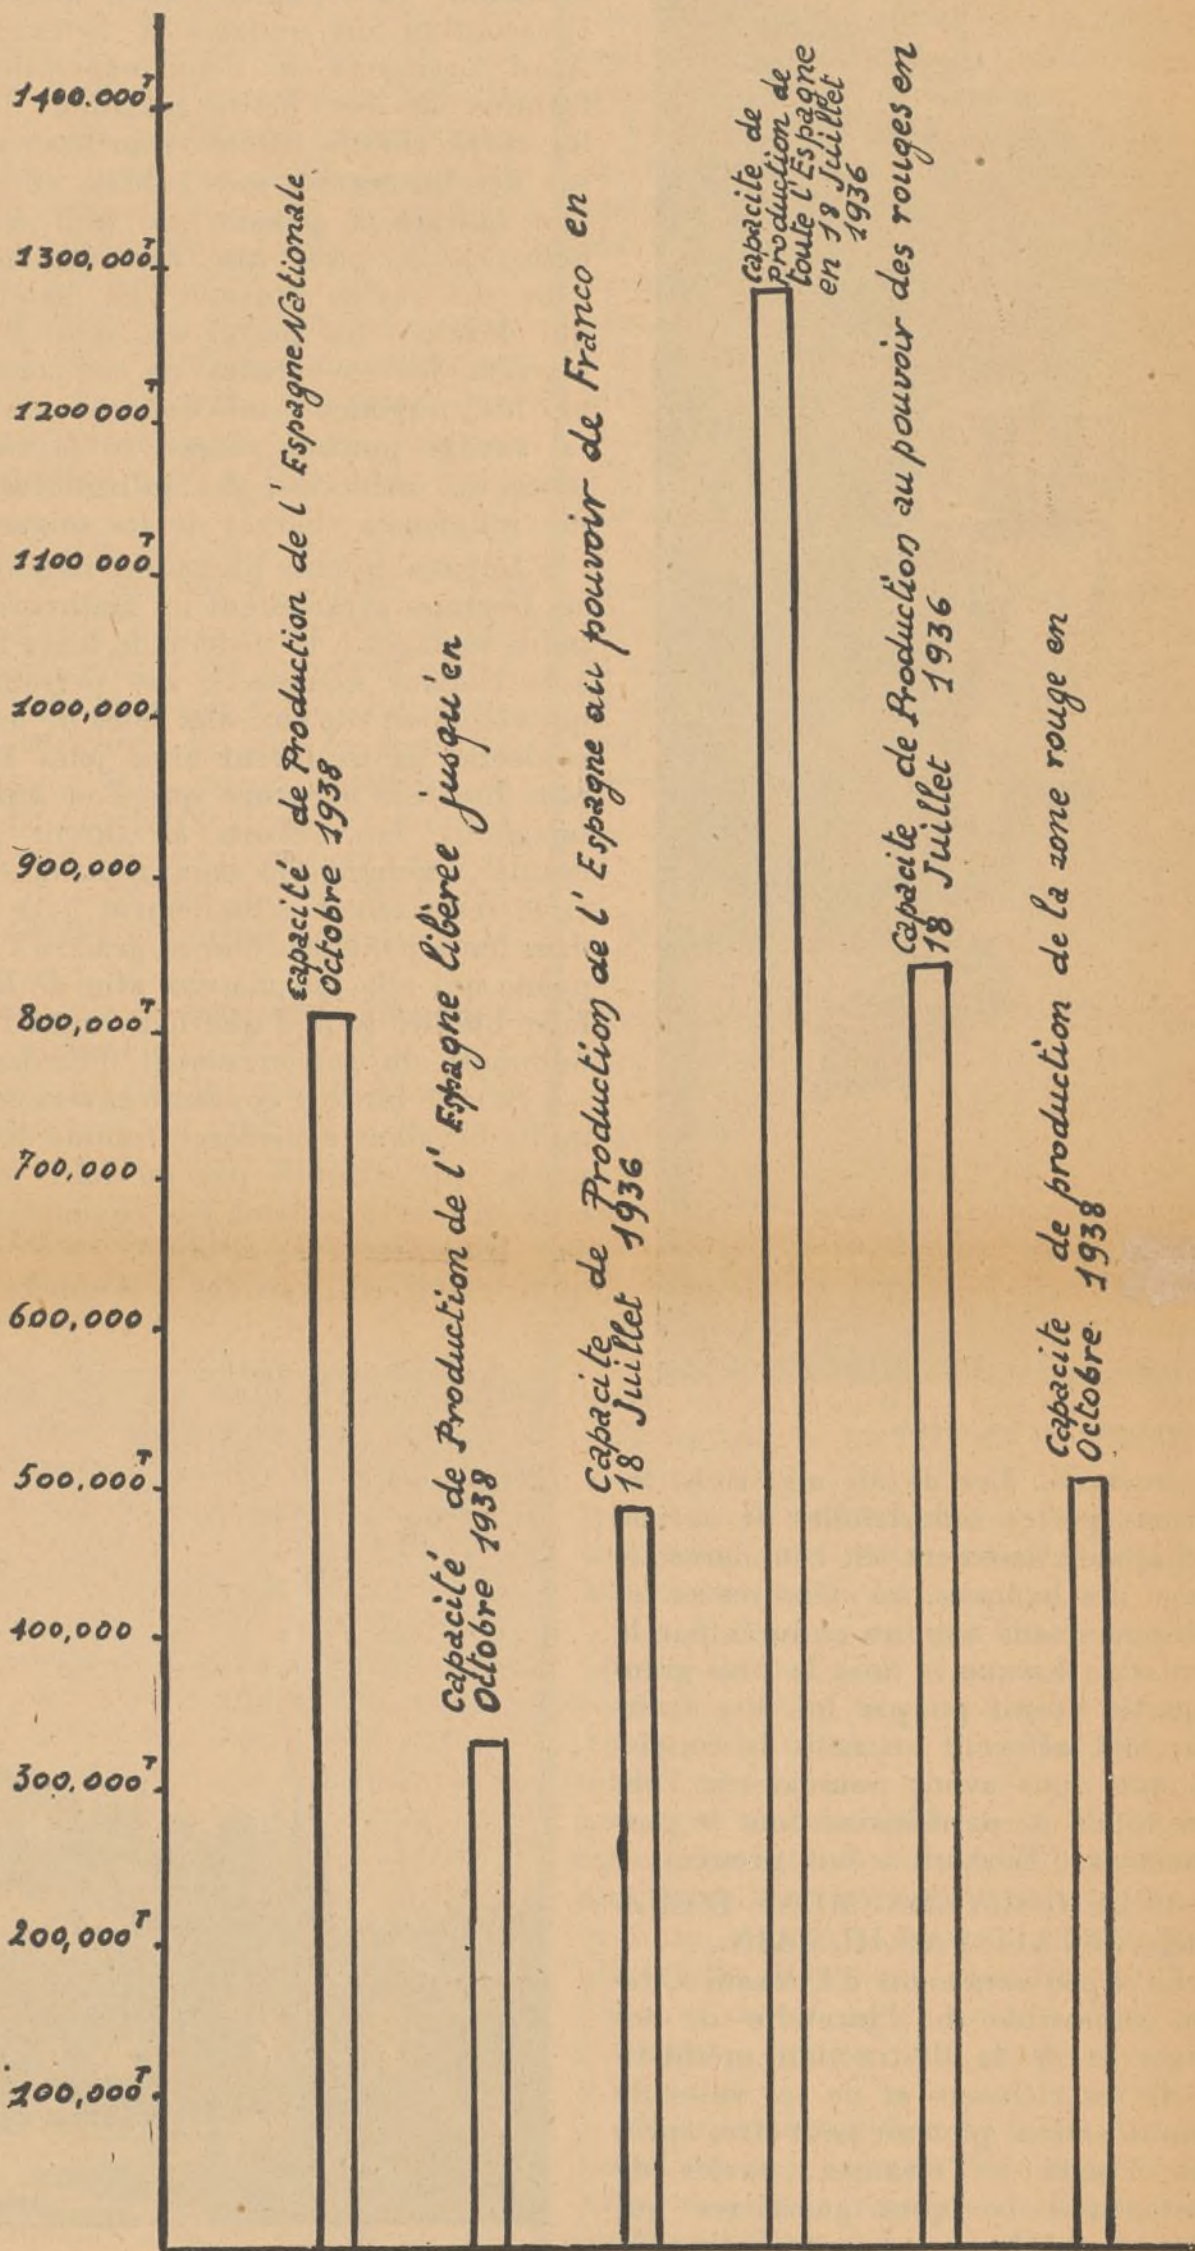 1400.000T
1300,000T
1200000T
1100 000T
1000,000T
900,000
800,000T
700,000
600,000
500,000T
400,000
300.000T
200,000T
100,000T
Capacité de Production de l'Espagne Nationale
Octobre 1938
Capacité de Production de l'Espagne libèree jusqu'en
Octobre 1938
Capacite de Production de l'Espagne au pouvoir de Franco en
18 Juillet 1936
Capacite de
Production de
toute l'Espagne
en 18 Juillet
1936
Capacite de Production au pouvoir des rouges en
18 Juillet 1936
Capacite de production de la zone rouge en
Octobre 1938